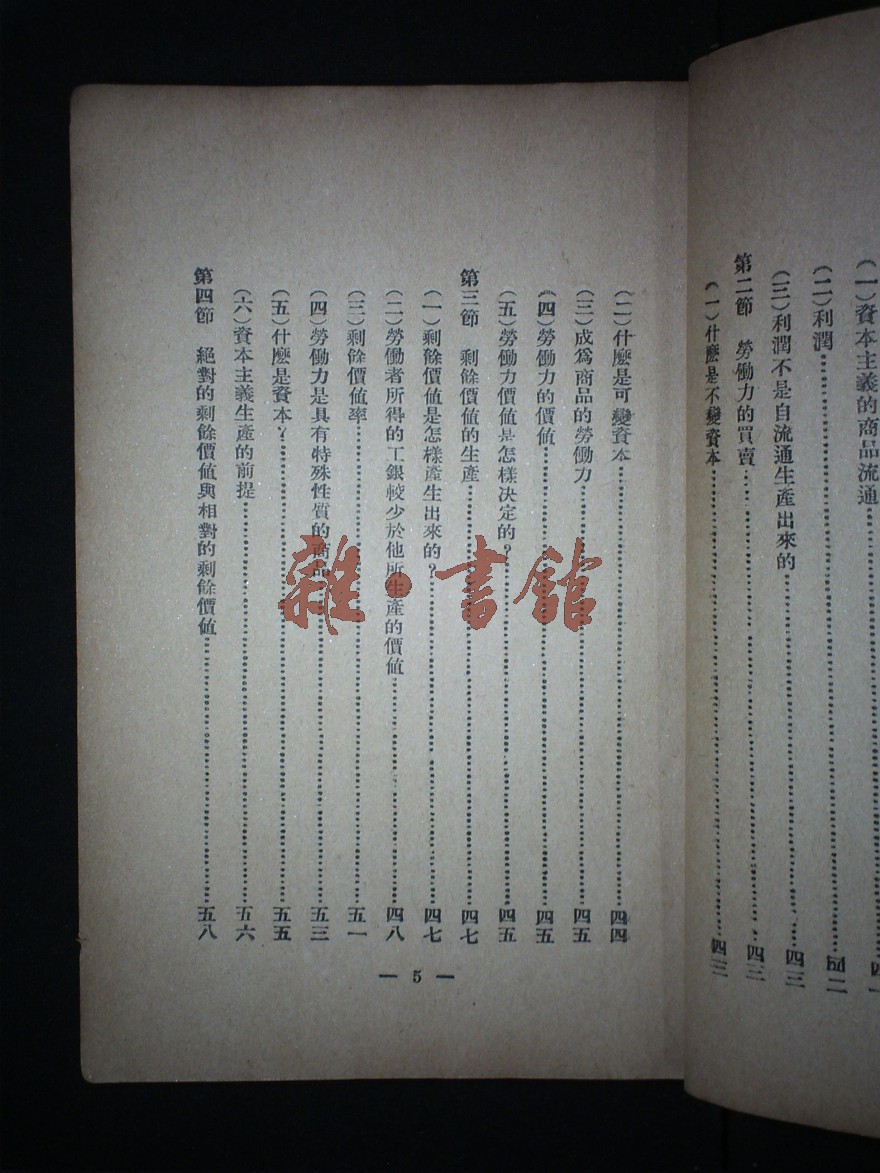 (一)資本主義的商品流通…………
(二)利潤…………四二
(三)利潤不是自流通生產出來的…………四三
第二節 勞働力的買賣…………四三
(一)什麼是不變資本…………四三
(二)什麼是可變資本…………四四
(三)成爲商品的勞働力…………四五
(四)勞働力的價値…………四五
(五)勞働力價値是怎樣決定的?…………四五
第三節 剩餘價値的生產…………四七
(一)剩餘價値是怎樣產生出來的?…………四七
(二)勞働者所得的工銀較少於他所生產的價値…………四八
(三)剩餘價値率…………五一
(四)勞働力是具有特殊性質的商品…………五三
(五)什麼是資本?…………五五
(六)資本主義生產的前提…………五六
第四節 絕對的剩餘價値與相對的剩餘價値…………五八
— 5 —
雜·書館